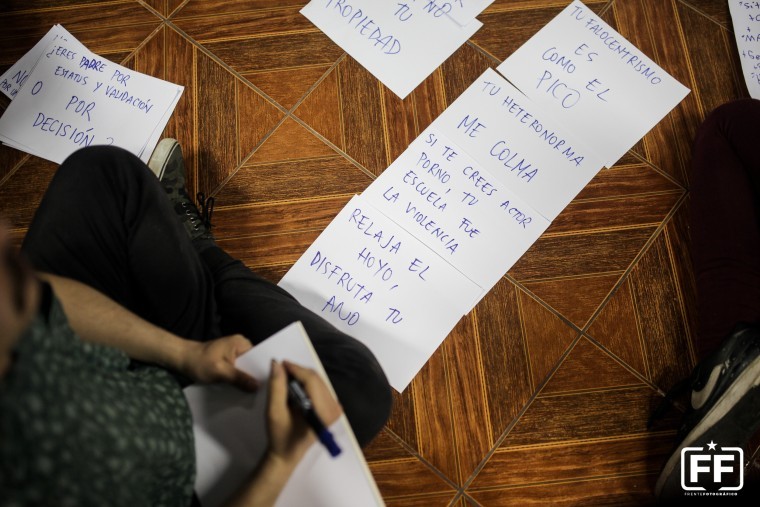 ¿ERES PADRE POR
ESTATUS Y VALIDACIÓN
O POR
DECISIÓN?
NO
TU
PROPIEDAD
TU FALOCENTRISMO
ES
COMO EL
PICO
TU HETERONORMA
ME COLMA
SI TE CREES ACTOR
PORNO, TU
ESCUELA FUE
LA VIOLENCIA
RELAJA EL
HOYO,
DISFRUTA TU
ANO
FF
FRENTEFOTOGRÁFICO